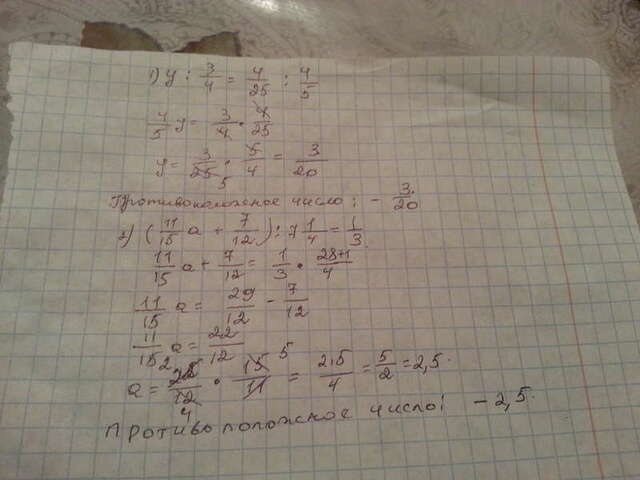 1) y : 3/4 = 4/25 : 4/5
4/5 y = 3/4 · 4/25
y = 3/25 · 5/4 = 3/20
5
Противоположное число: - 3/20
2) (11/15 a + 7/12) : 7 1/4 = 1/3
11/15 a + 7/12 = 1/3 · 28+1/4
11/15 a = 29/12 - 7/12
11/15 a = 22/12
2 5
a = 22/12 · 15/11 = 2·5/4 = 5/2 = 2,5.
4
Противоположное число: - 2,5.